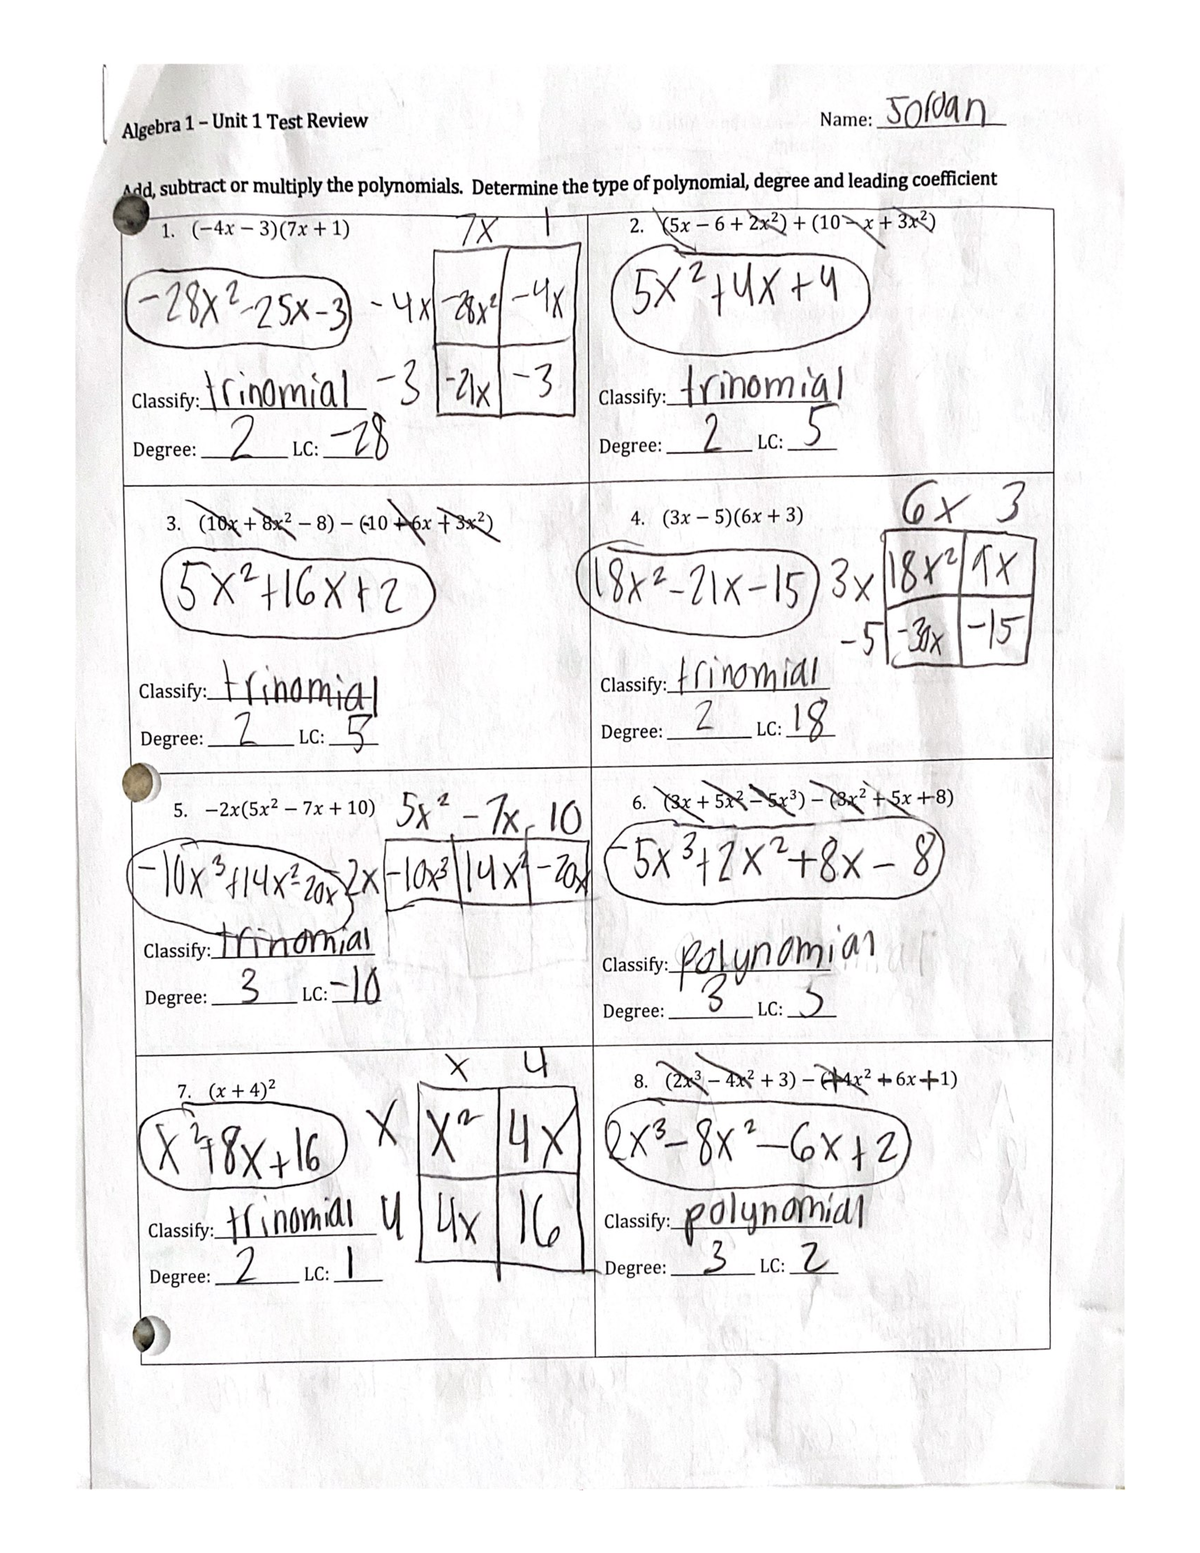 Algebra 1 – Unit 1 Test Review
Name: Jordan
Add, subtract or multiply the polynomials. Determine the type of polynomial, degree and leading coefficient
1. (−4x − 3)(7x + 1)
7x 1
-28x²-25x-3
-4x -28x² -4x
-3 -21x -3
Classify: trinomial
Degree: 2 LC: -28
2. (5x − 6 + 2x²) + (10 − x + 3x²)
5x²+4x+4
Classify: trinomial
Degree: 2 LC: 5
3. (10x + 8x² − 8) − (-10 + 6x + 3x²)
5x²+16x+2
Classify: trinomial
Degree: 2 LC: 5
4. (3x − 5)(6x + 3)
6x 3
18x²-21x-15
3x 18x² 9x
-5 -30x -15
Classify: trinomial
Degree: 2 LC: 18
5. −2x(5x² − 7x + 10)
5x² -7x 10
-10x³+14x²-20x
-2x -10x³ 14x² -20x
Classify: trinomial
Degree: 3 LC: -10
6. (3x + 5x² − 5x³) − (3x² + 5x + 8)
-5x³+2x²+8x-8
Classify: polynomial
Degree: 3 LC: 5
7. (x + 4)²
x 4
x²+8x+16
x x² 4x
4 4x 16
Classify: trinomial
Degree: 2 LC: 1
8. (2x³ − 4x² + 3) − (+4x² + 6x + 1)
2x³-8x²-6x+2
Classify: polynomial
Degree: 3 LC: 2